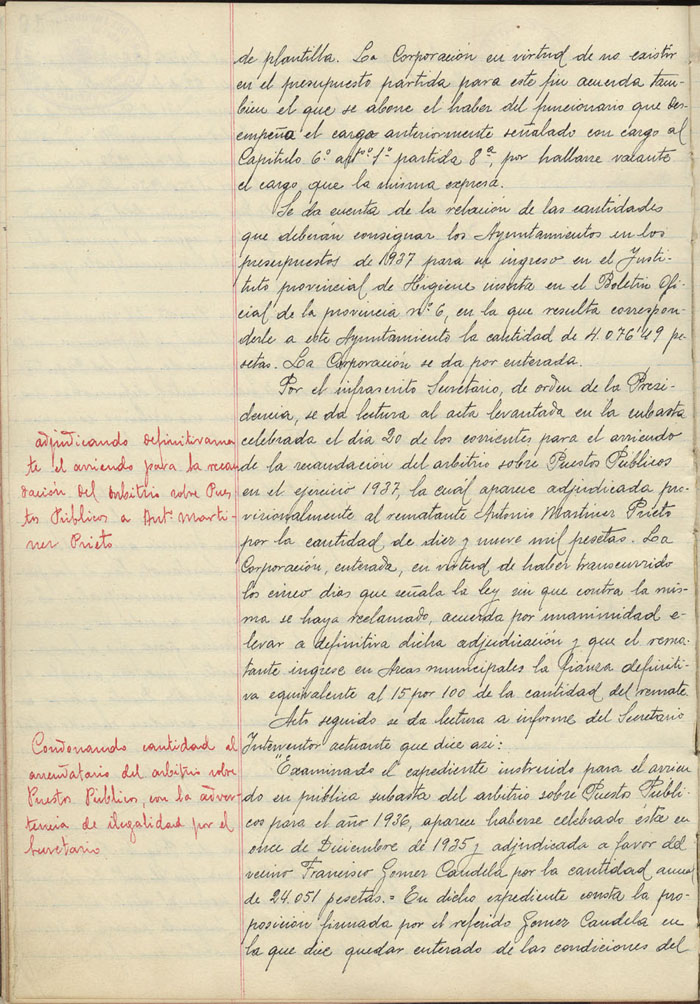 de plantilla. La Corporación en virtud de no existir
en el presupuesto partida para este fin acuerda tam-
bien el que se abone el haber del funcionario que des-
empeña el cargo anteriormente señalado con cargo al
Capitulo 6º artº 1º partida 8ª, por hallarse vacante
el cargo que la misma expresa.
Se da cuenta de la relación de las cantidades
que deberán consignar los Ayuntamientos en los
presupuestos de 1937 para su ingreso en el Insti-
tuto provincial de Higiene inserta en el Boletin Ofi-
cial de la provincia nº 6, en la que resulta correspon-
derle a este Ayuntamiento la cantidad de 4.076'49 pe-
setas. La Corporación se da por enterada.
Por el infrascrito Secretario, de orden de la Presi-
dencia, se da lectura al acta levantada en la subasta
celebrada el dia 20 de los corrientes para el arriendo
de la recaudación del arbitrio sobre Puestos Públicos
en el ejercicio 1937, la cuál aparece adjudicada pro-
visionalmente al rematante Antonio Martinez Prieto
por la cantidad de diez y nueve mil pesetas. La
Corporación, enterada, en virtud de haber transcurrido
los cinco dias que señala la ley sin que contra la mis-
ma se haya reclamado, acuerda por unanimidad e-
levar a definitiva dicha adjudicación y que el rema-
tante ingrese en Arcas municipales la fianza definiti-
va equivalente al 15 por 100 de la cantidad del remate.
Acto seguido se da lectura a informe del Secretario
Interventor actuante que dice asi:
"Examinado el expediente instruido para el arrien-
do en pública subasta del arbitrio sobre Puestos Públi-
cos para el año 1936, aparece haberse celebrado ésta en
once de Diciembre de 1935 y adjudicada a favor del
vecino Francisco Gomez Candela por la cantidad anual
de 24.051 pesetas.= En dicho expediente consta la pro-
posición firmada por el referido Gomez Candela en
la que dice quedar enterado de las condiciones del
adjudicando definitivame
te el arriendo para la recau
dación del arbitrio sobre Pues
tos Públicos a Antº Marti-
nez Prieto
Condonando cantidad al
arrendatario del arbitrio sobre
Puestos Público, con la adver-
tencia de ilegalidad por el
Secretario